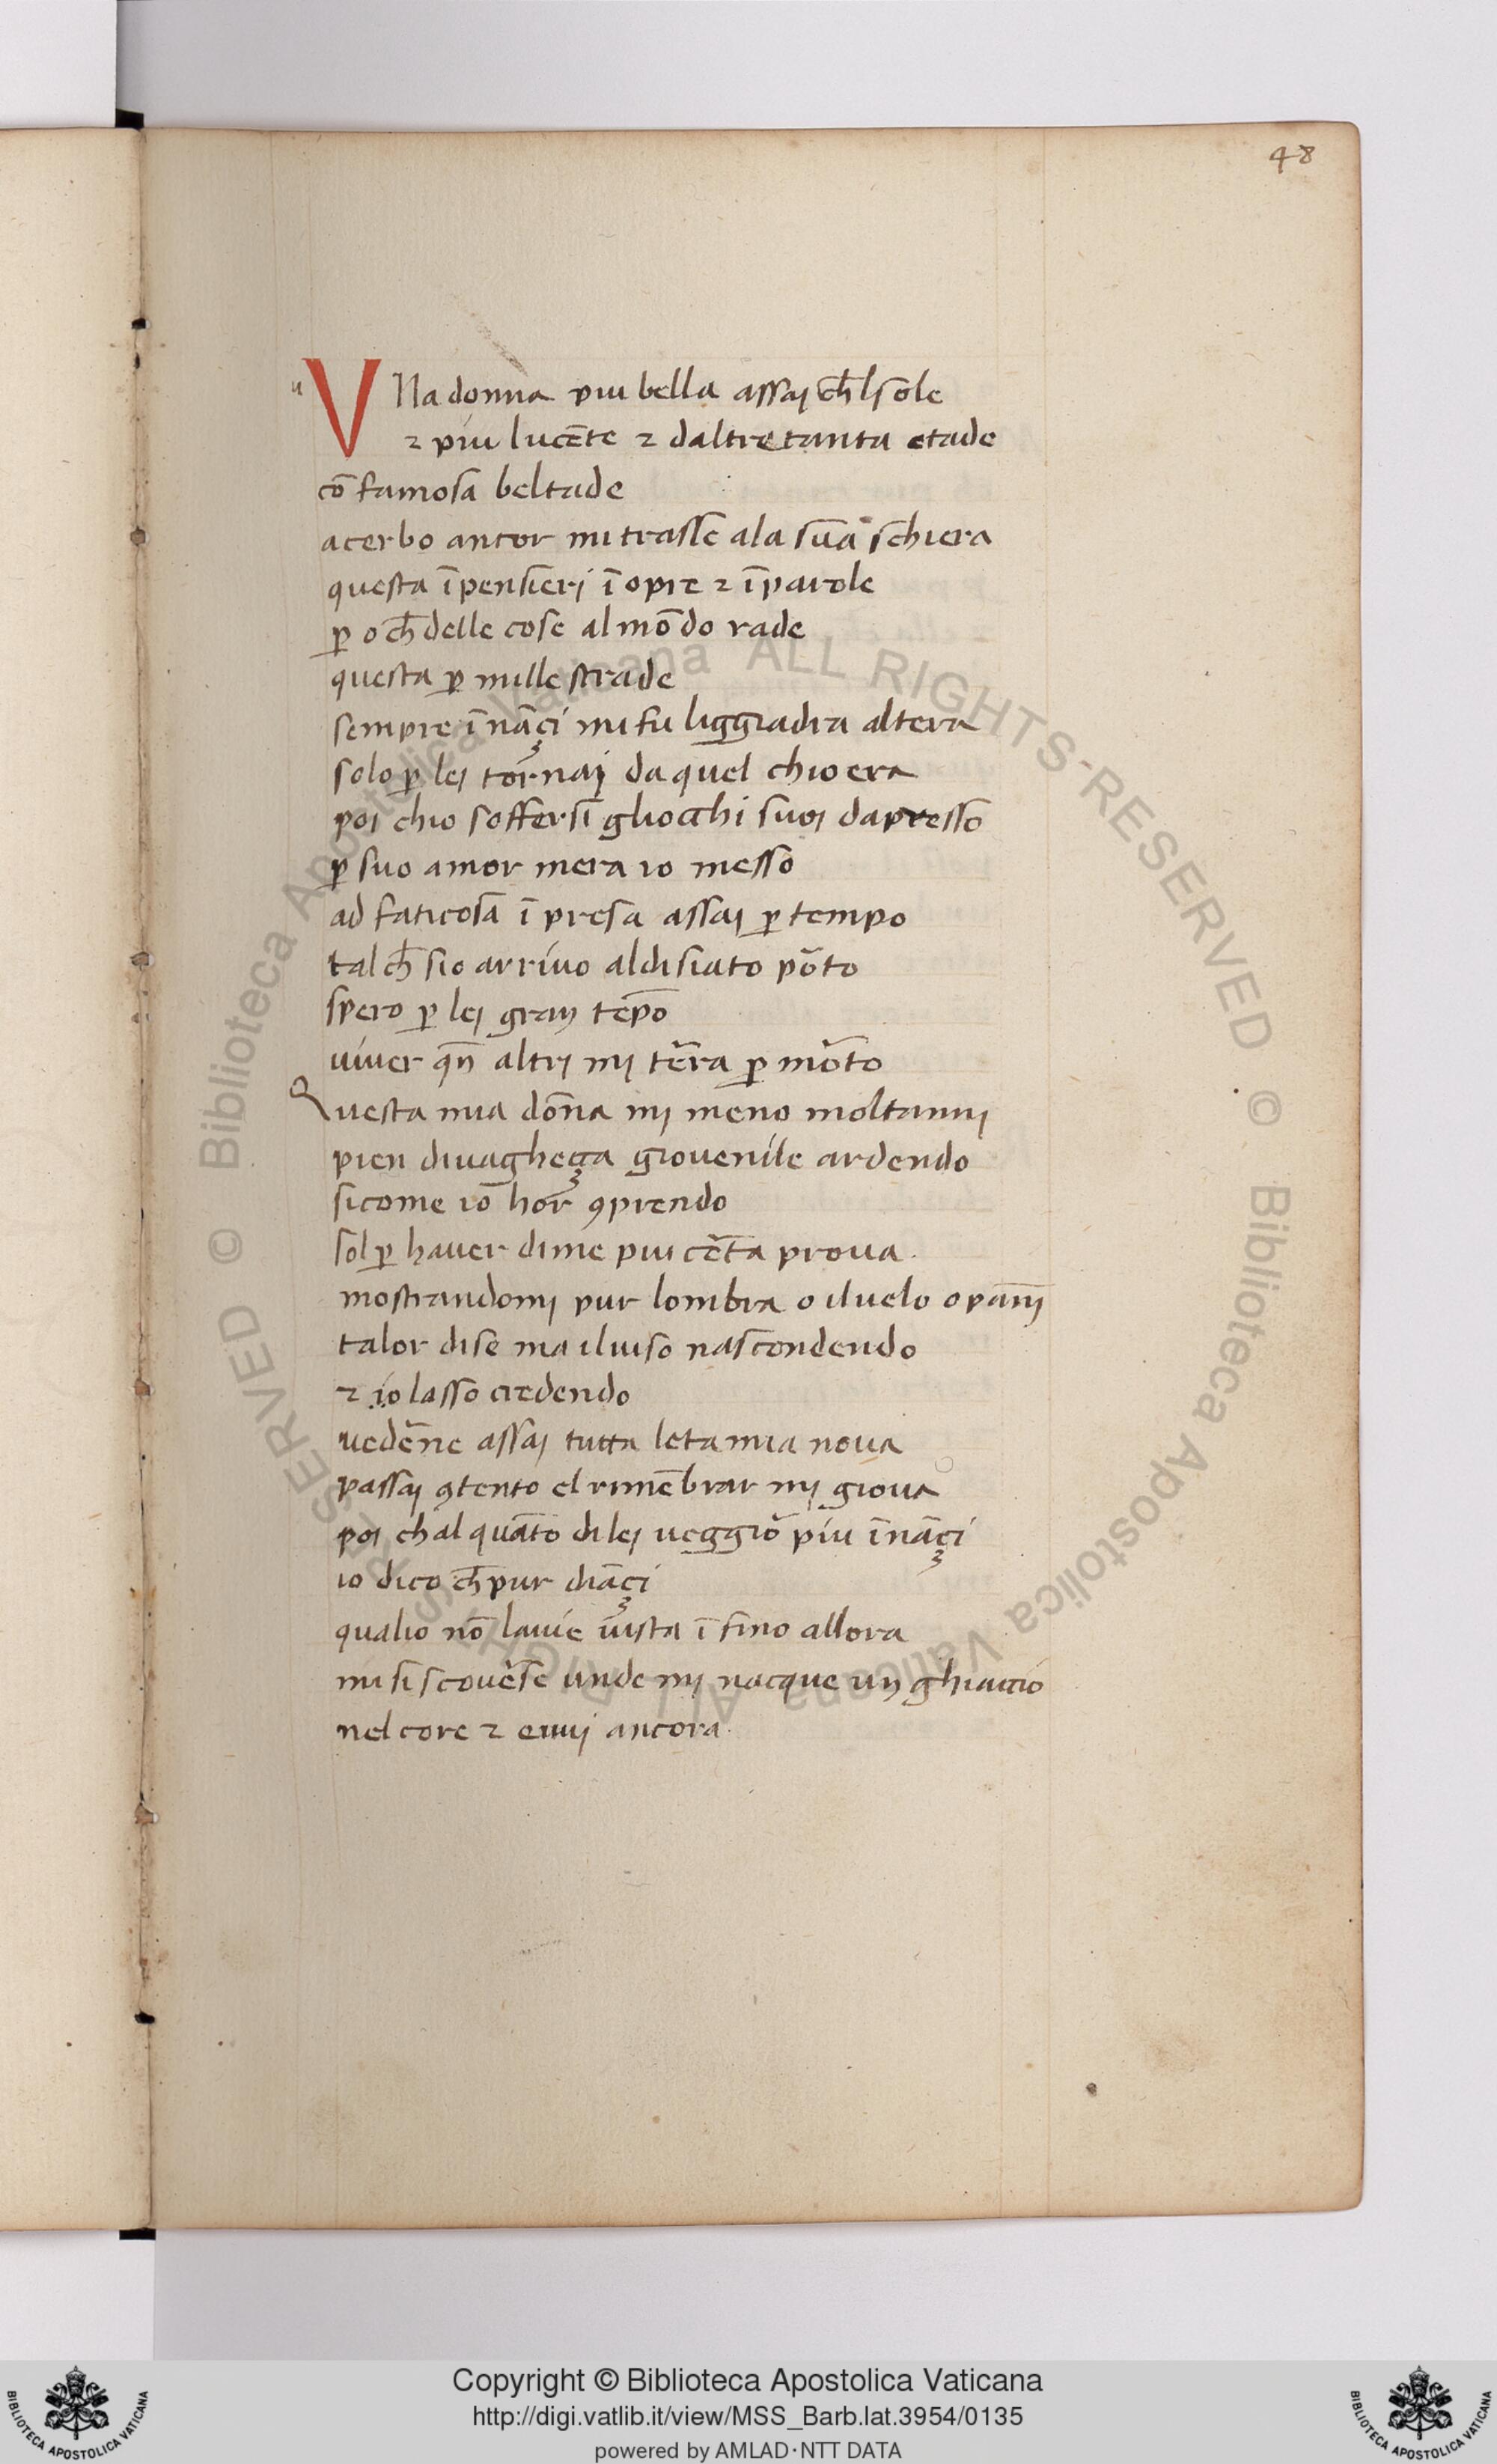 48
u
VNa donna piu bella assaj ch̄ lsole
⁊ piu lucēte ⁊ daltretanta etade
cō famosa beltade
acerbo ancor mi trasse ala sua schiera
questa ī pensierj ī opre ⁊ ī parole
ꝑ o ch̄ delle cose al mōdo rade
questa ꝑ mille strade
sempre ī nāçi mi fu liggiadra altera
solo ꝑ lej tornaj da quel chio era
poj chio soffersi gliocchi suoj dapresso
ꝑ suo amor mera io messo
ad faticosa ī presa assaj ꝑ tempo
tal ch̄ sio arriuo aldisiato pōto
spero ꝑ lej gran tēpo
uiuer qn̄ altrj mj terra ꝑ mōto
Questa mia dōna mj meno moltannj
pien diuagheça giouenile ardendo
sicome io hor ꝯprendo
sol ꝑ hauer dime piu cēta proua
mostrandomj pur lombra o iluelo o pānj
talor dise ma iluiso nascondendo
⁊ io lasso credendo
uedēne assaj tutta leta mia noua
passaj ꝯtento el rimēbrar mj gioua
poj chal quāto di lej ueggio piu īnāçi
io dico ch̄ pur diāçi
qualio nō lauie uista ī fino allora
mi si scouēse unde mj nacque un ghiaccio
nel core ⁊ euuj ancora
Copyright © Biblioteca Apostolica Vaticana
http://digi.vatlib.it/view/MSS_Barb.lat.3954/0135
powered by AMLAD·NTT DATA
BIBLIOTECA APOSTOLICA VATICANA
BIBLIOTECA APOSTOLICA VATICANA
© Biblioteca Apostolica Vaticana ALL RIGHTS RESERVED © Biblioteca Apostolica Vaticana ALL RIGHTS RESERVED